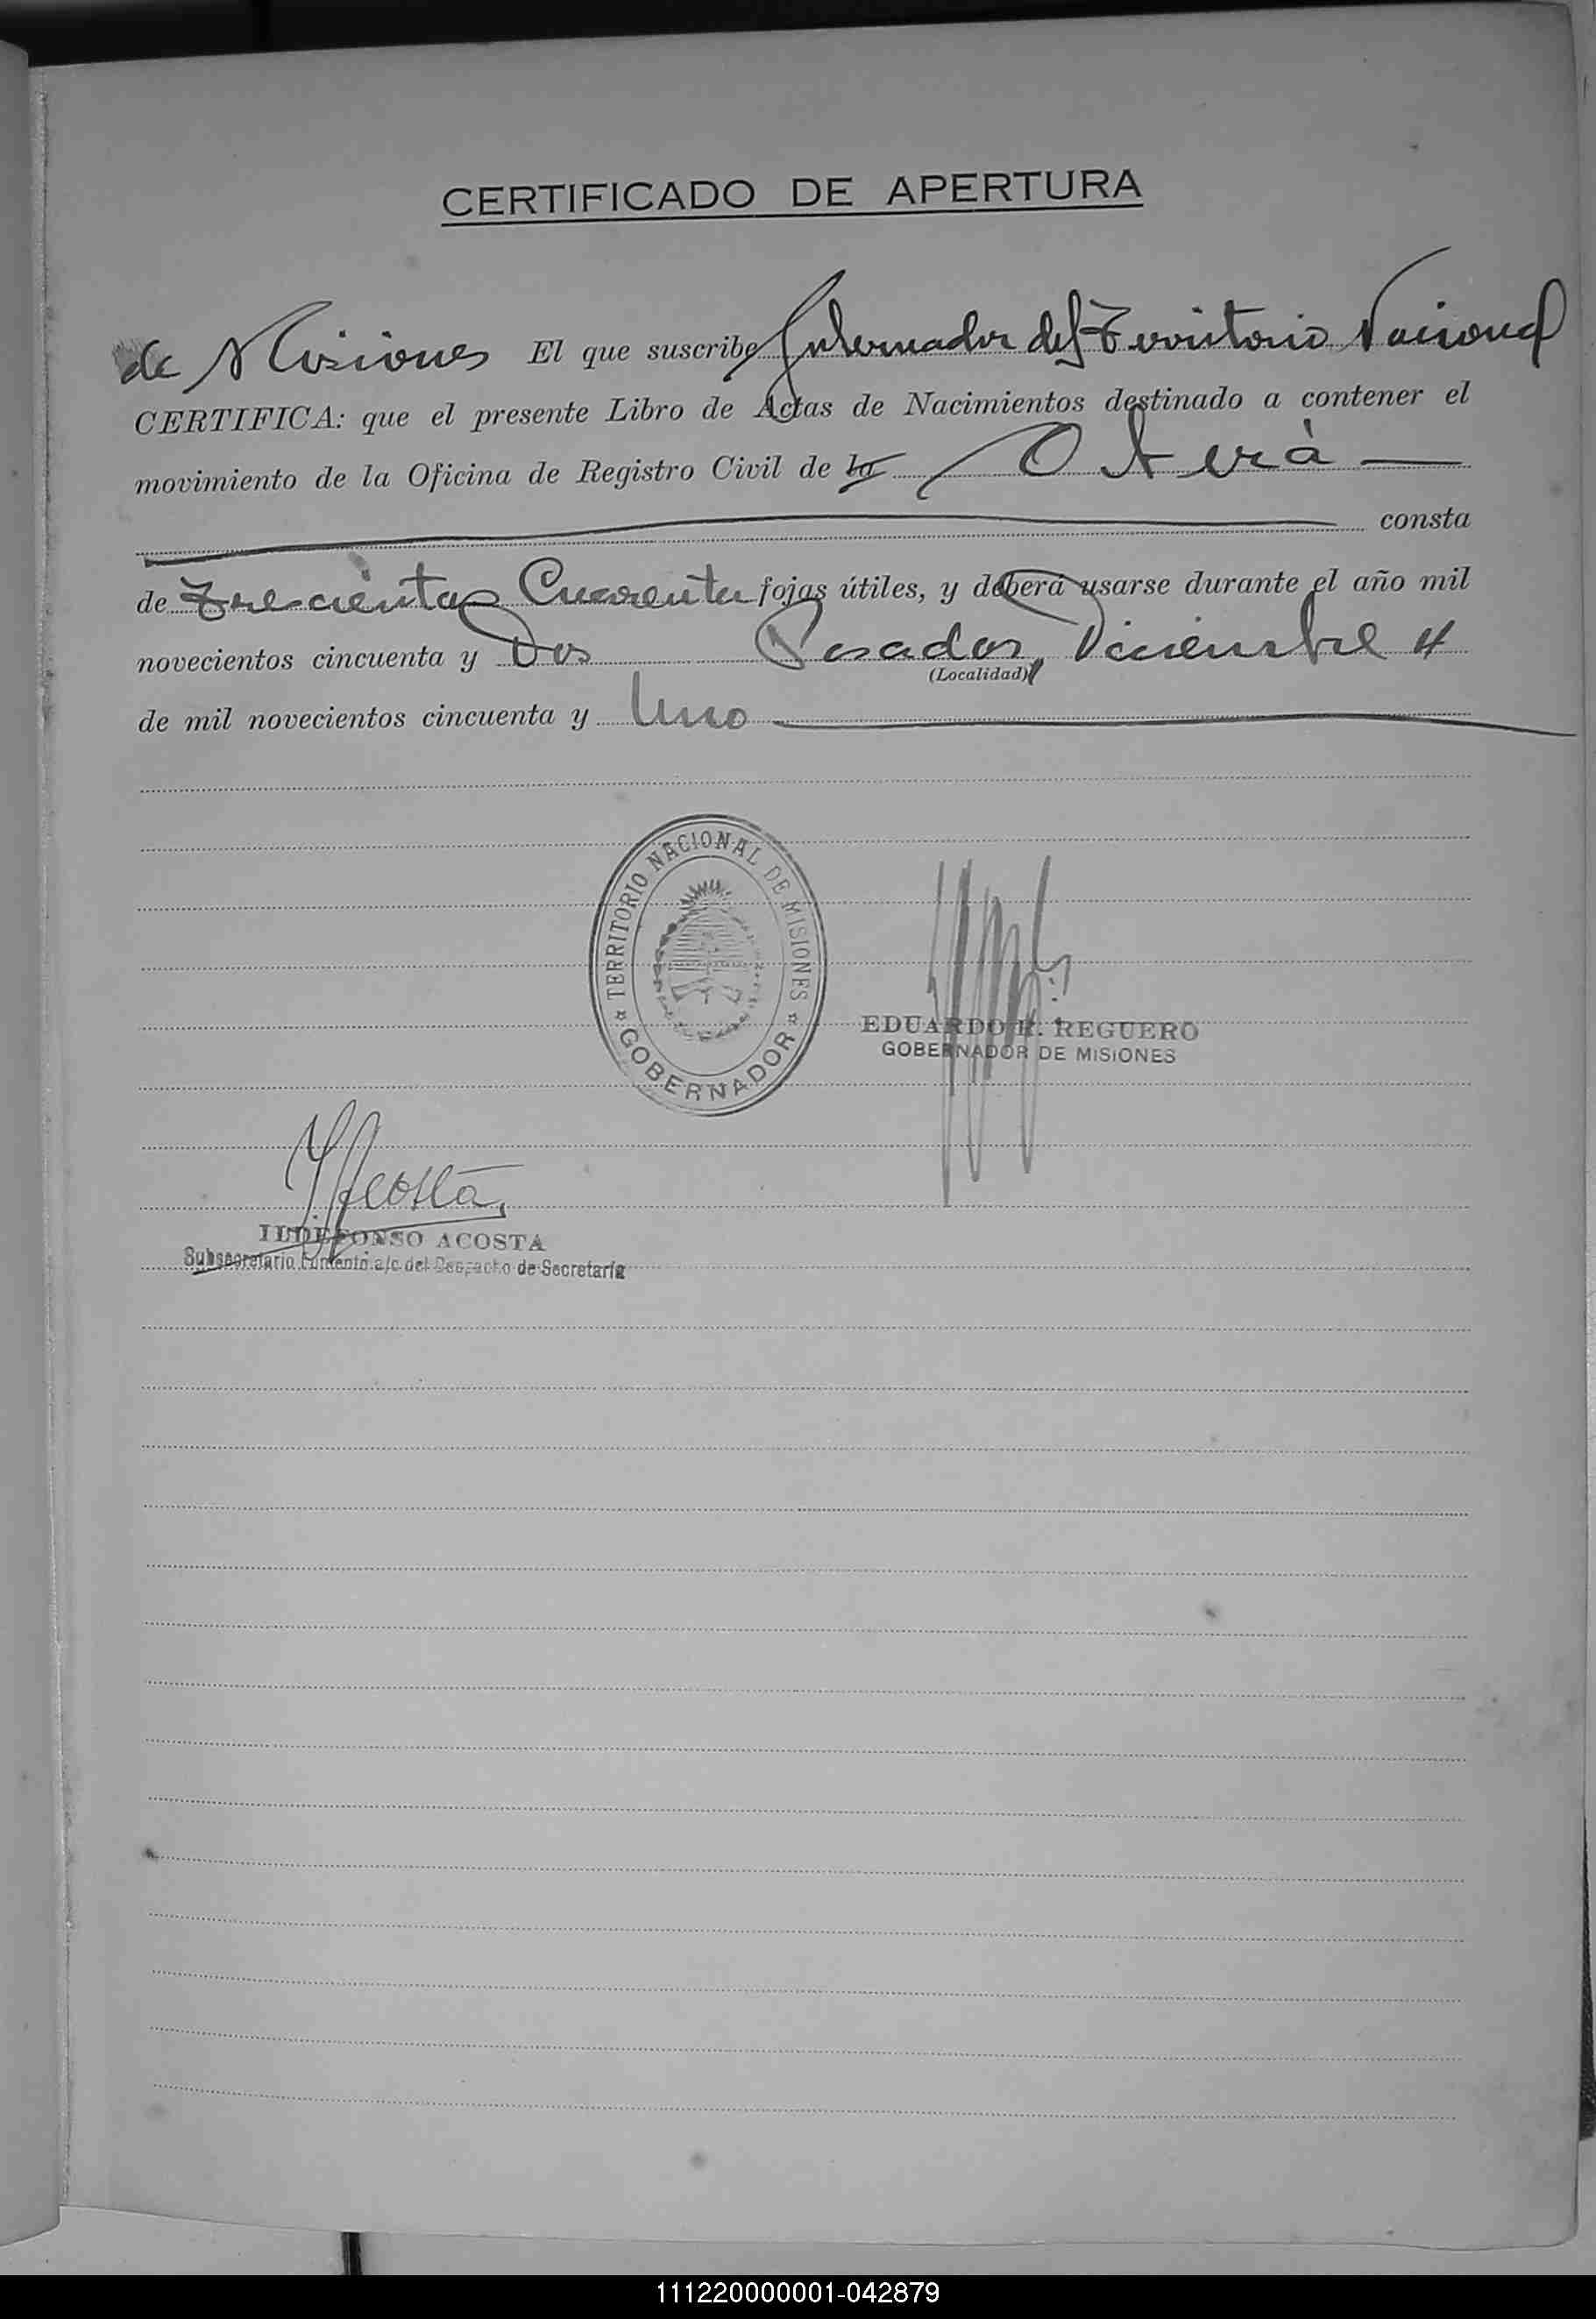 CERTIFICADO DE APERTURA
de Misiones El que suscribe Gobernador del Territorio Nacional
CERTIFICA: que el presente Libro de Actas de Nacimientos destinado a contener el
movimiento de la Oficina de Registro Civil de la Oberá
consta
de Trecientas Cuarenta fojas útiles, y deberá usarse durante el año mil
novecientos cincuenta y Dos Posadas, Diciembre 4
(Localidad)
de mil novecientos cincuenta y Uno
TERRITORIO NACIONAL DE MISIONES
GOBERNADOR
EDUARDO R. REGUERO
GOBERNADOR DE MISIONES
IAcosta
ILDEFONSO ACOSTA
Subsecretario Fomento a/c del Despacho de Secretaría
111220000001-042879